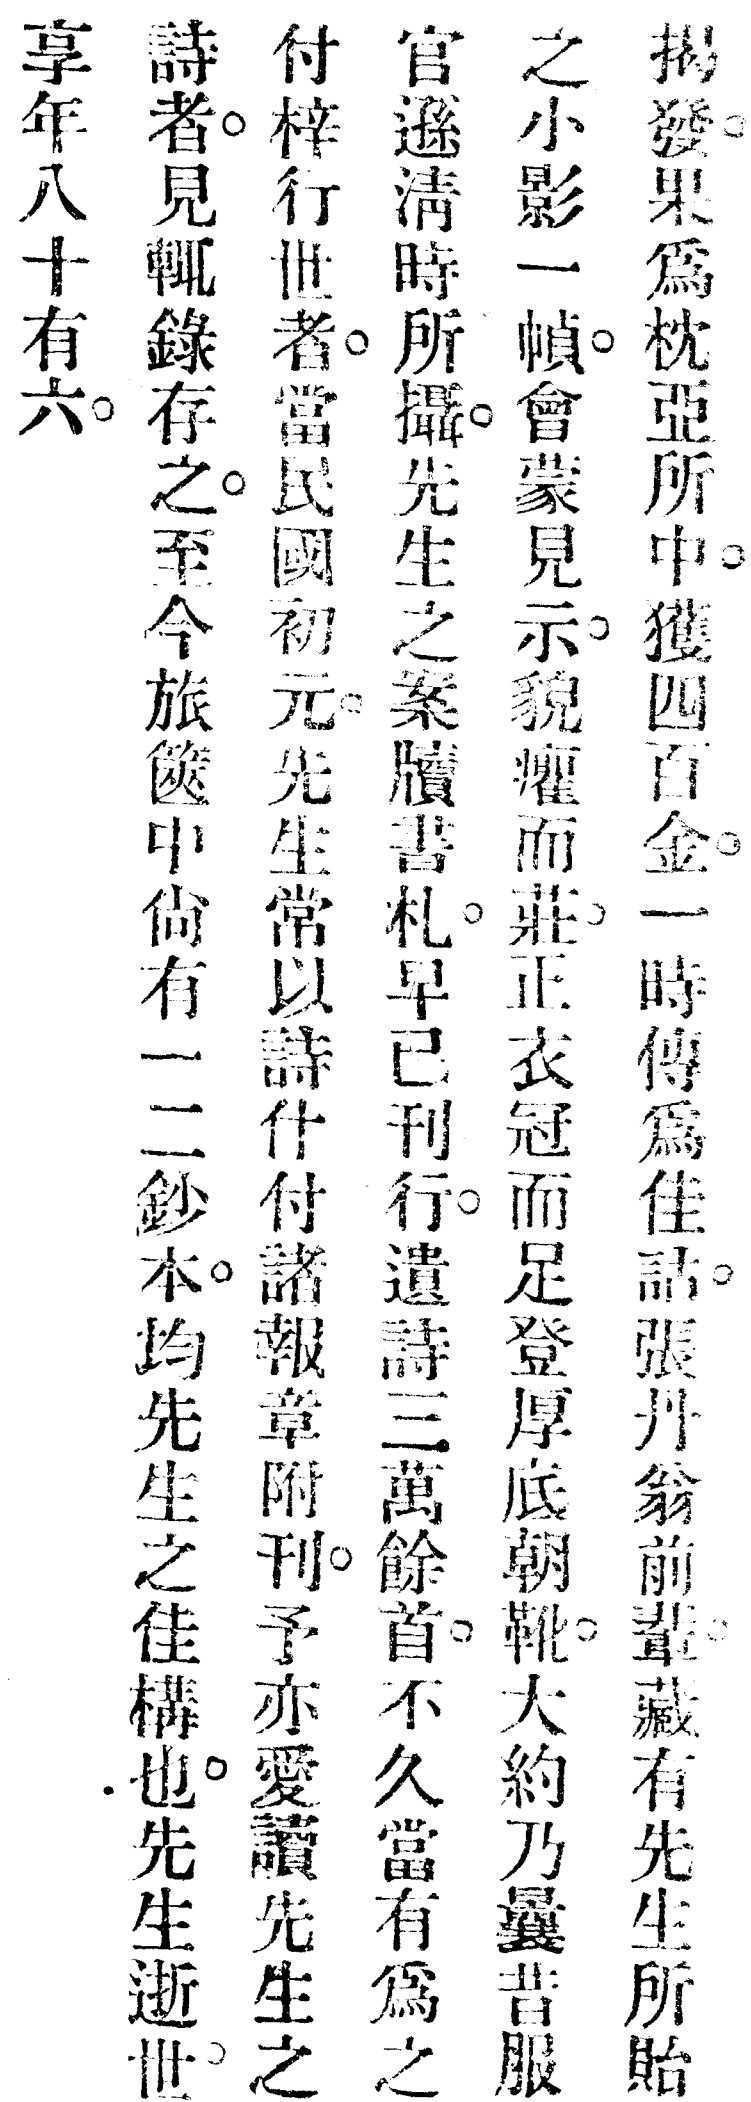 揭發。果爲枕亞所中。獲四百金。一時傳爲佳話。張丹翁前輩。藏有先生所貽
之小影一幀。會蒙見示。貌癯而莊。正衣冠而足登厚底朝靴。大約乃曩昔服
官遜淸時所攝。先生之案牘書札。早已刊行。遺詩三萬餘首。不久當有爲之
付梓行世者。當民國初元。先生常以詩什付諸報章附刊。予亦愛讀先生之
詩者。見輒錄存之。至今旅篋中尙有一二鈔本。均先生之佳構也。先生逝世。
享年八十有六。